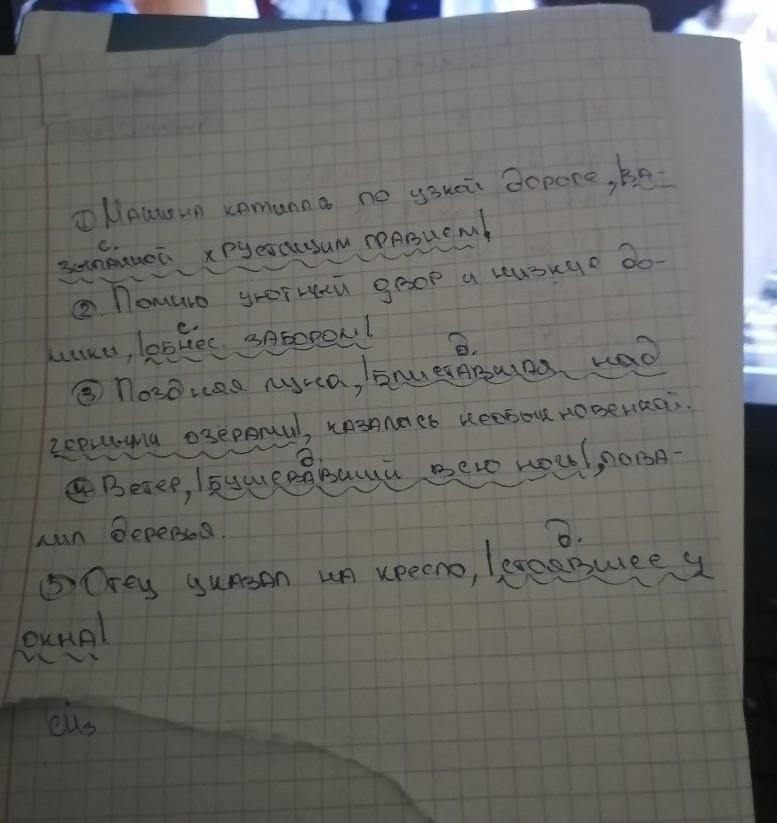 ① Машина катилла по узкой дороге, |ва-
с.
зыпанной хрустящим гравием|
②. Помню уютный двор и низкие до-
с.
мики, |обнес. забором|
д.
③ Поздняя луна, |блиставшая над
черными озерами|, казалась необыкновенной.
д.
④ Ветер, |бушевавший всю ночь|, пова-
лил деревья.
д.
⑤ Отец указал на кресло, |стоявшее у
окна|